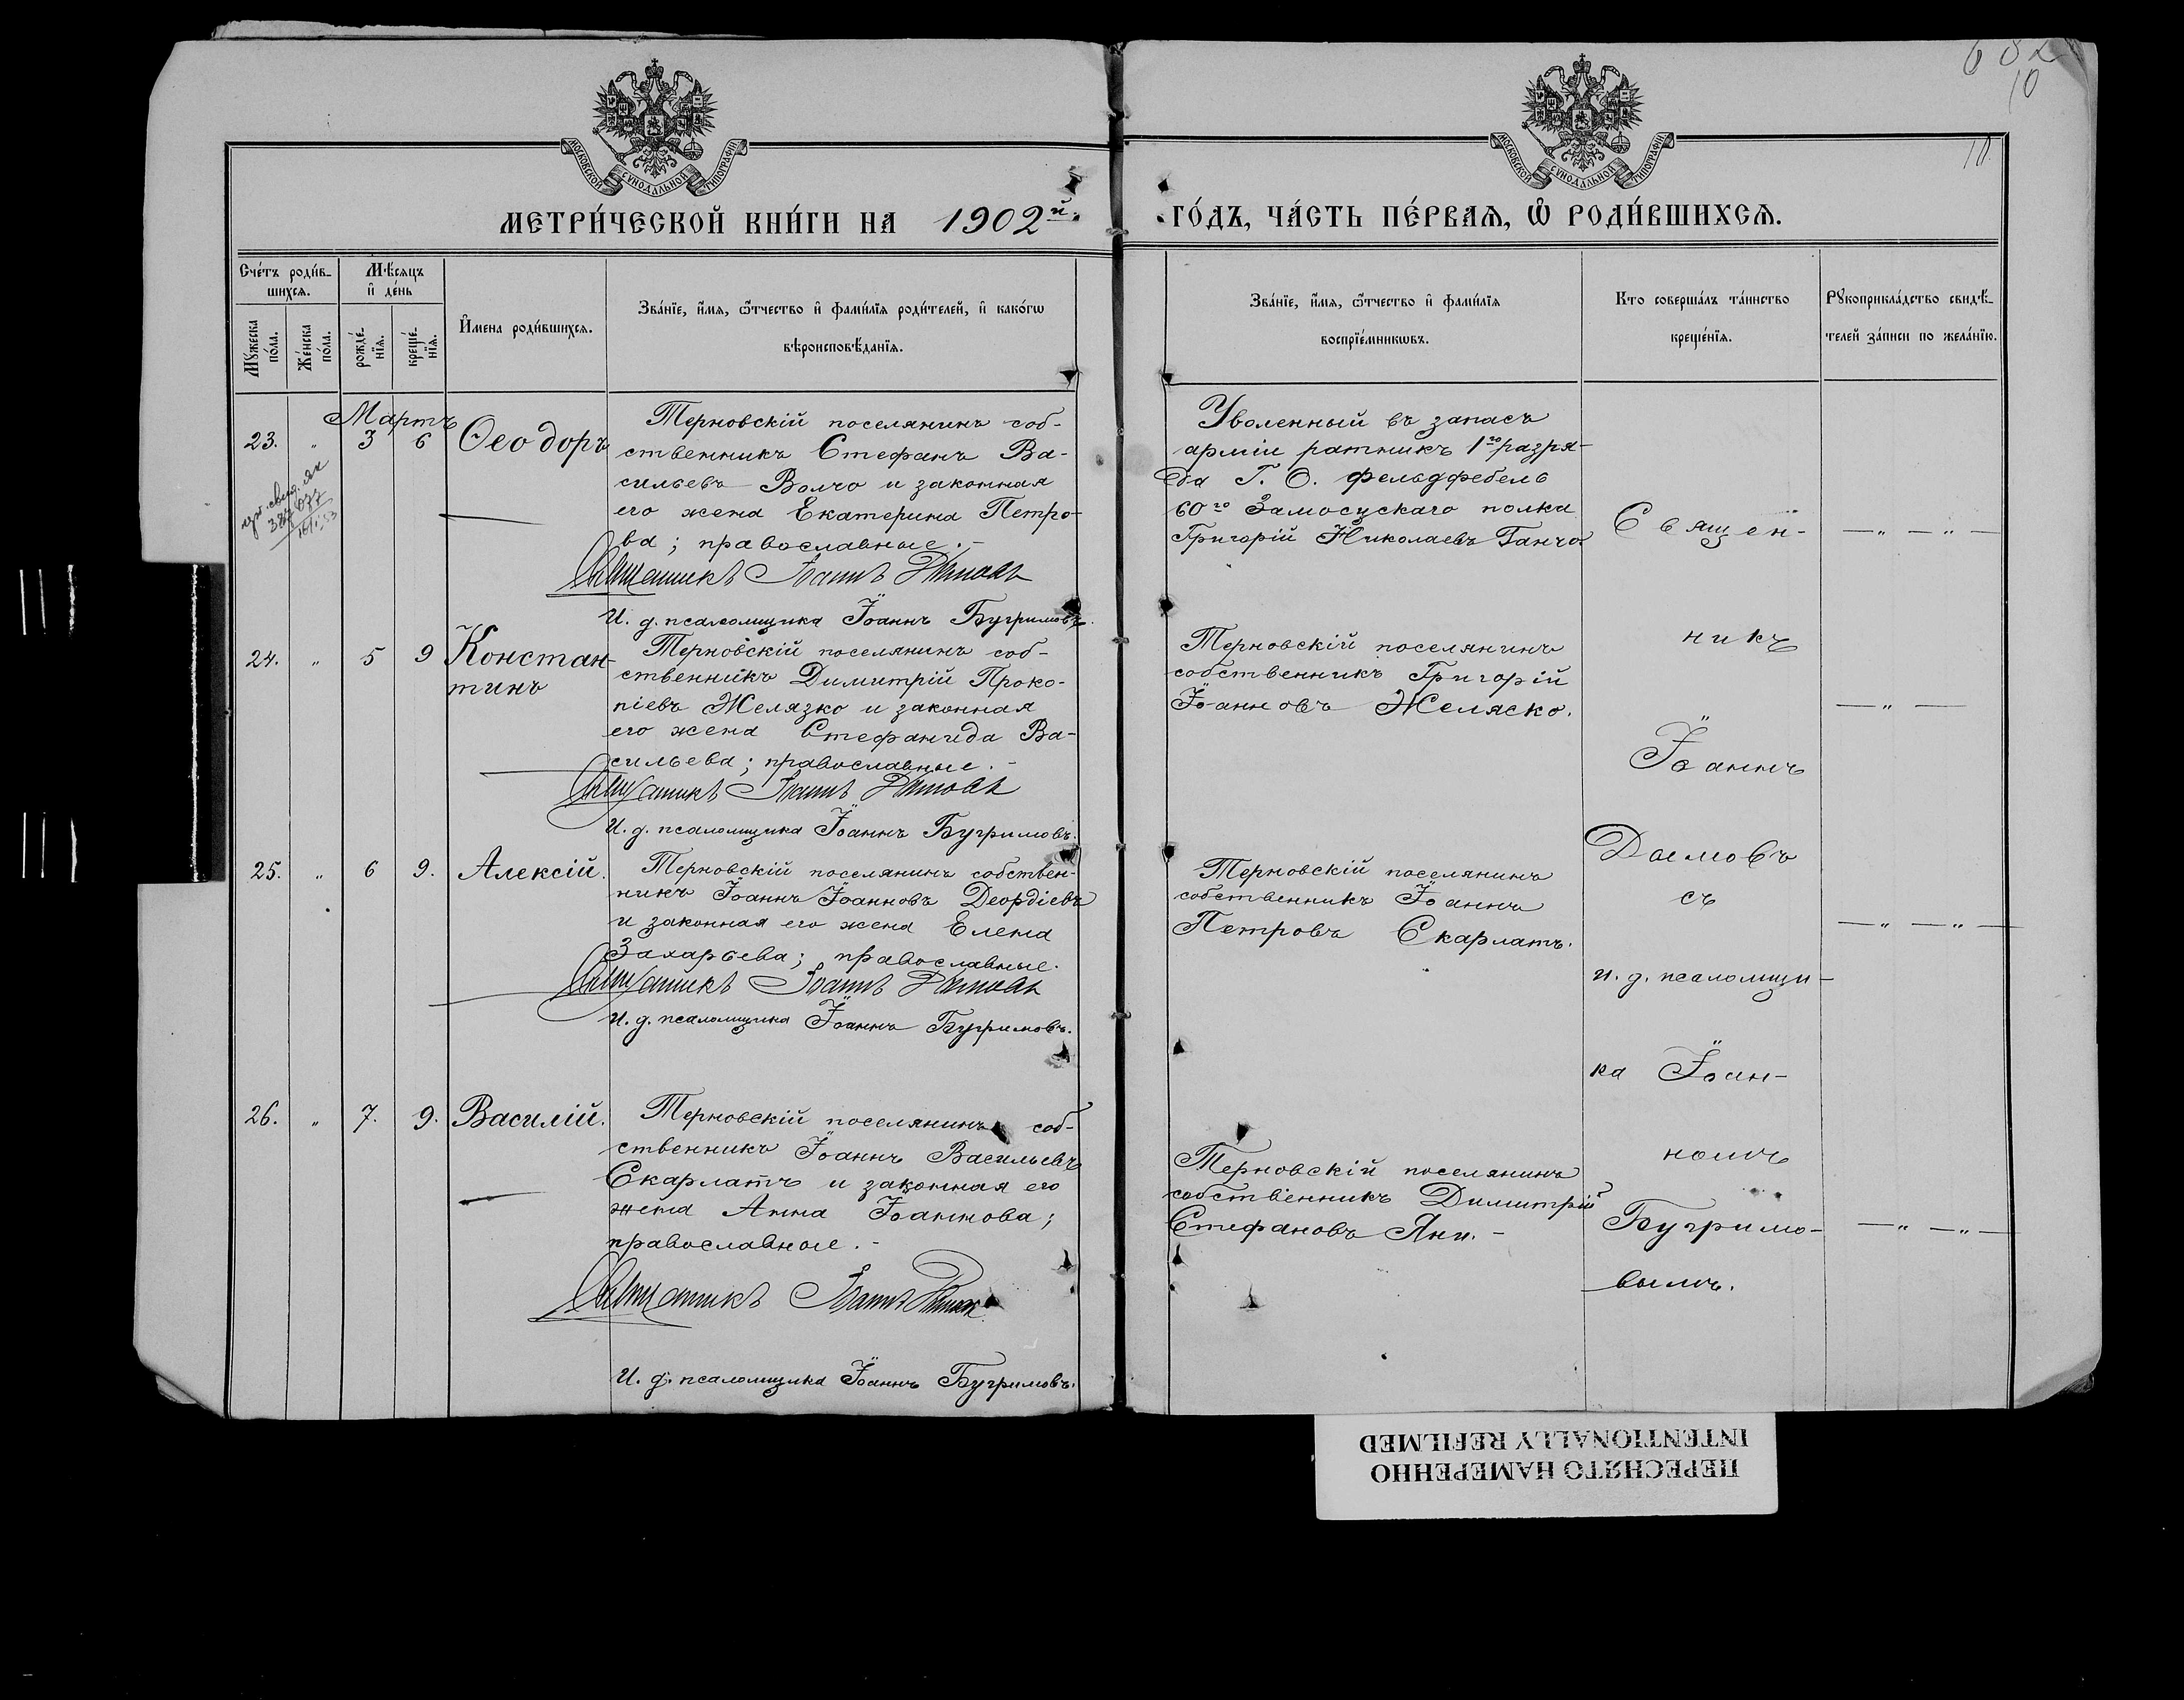 682
10
10.
МОСКОВСКОЙ СѴНОДАЛЬНОЙ ТИПОГРАФІИ
МОСКОВСКОЙ СѴНОДАЛЬНОЙ ТИПОГРАФІИ
МЕТРИ́ЧЕСКОЙ КНИ́ГИ НА 1902й.
ГО́ДЪ, ЧА́СТЬ ПЕ́РВАЯ, Ѽ РОДИ́ВШИХСЯ.
Сче́тъ роди́в-
шихся.
Мꙋжеска по́ла.
Же́нска по́ла.
Мѣ́сяцъ
и҆ де́нь
рожде́-
нїя.
креще́-
нїя.
И҆мена роди́вшихся.
Зва́нїе, и҆́мя, ѻ҆́тчество и҆ фами́лїя роди́телей, и҆ како́гѡ
вѣроисповѣ́данїя.
Зва́нїе, и҆́мя, ѻ҆́тчество и҆ фами́лїя
воспрїе́мникѡвъ.
Кто соверша́лъ та́инство
креще́нїя.
Рꙋкоприкла́дство свидѣ́-
телей за́писи по жела́нїю.
Мартъ
23. " 3 6 Ѳеодоръ
Терновскій поселянинъ соб-
ственникъ Стефанъ Ва-
сильевъ Волчо и законная
его жена Екатерина Петро-
ва; православные.-
Священникъ Іоаннъ Дымовъ
И. д. псаломщика Іоаннъ Бугримовъ.
Уволенный въ запасъ
арміи ратникъ 1го разря-
да Г. О. фельдфебель
60го Замосцскаго полка
Григорій Николаевъ Ганчо
24. " 5 9 Констан-
тинъ
Терновскій поселянинъ соб-
ственникъ Димитрій Проко-
піевъ Желязко и законная
его жена Стефанида Ва-
сильева; православные.-
Священникъ Іоаннъ Дымовъ
И. д. псаломщика Іоаннъ Бугримовъ.
Терновскій поселянинъ
собственникъ Григорій
Іоанновъ Желяско.
25. " 6 9. Алексій.
Терновскій поселянинъ собствен-
никъ Іоаннъ Іоанновъ Деордіевъ
и законная его жена Елена
Захарьева; православные.
Священникъ Іоаннъ Дымовъ
И. д. псаломщика Іоаннъ Бугримовъ.
Терновскій поселянинъ
собственникъ Іоаннъ
Петровъ Скарлатъ.
26. " 7. 9. Василій.
Терновскій поселянинъ соб-
ственникъ Іоаннъ Васильевъ
Скарлатъ и законная его
жена Анна Іоаннова;
православные.-
Священникъ Іоаннъ Дымовъ
И. д. псаломщика Іоаннъ Бугримовъ.
Терновскій поселянинъ
собственникъ Димитрій
Стефановъ Яни.-
Священ-
никъ
Іоаннъ
Дымовъ
съ
и. д. псаломщи-
ка Іоан-
номъ
Бугримо-
вымъ.
ПЕРЕСНЯТО НАМЕРЕННО
INTENTIONALLY REFILMED